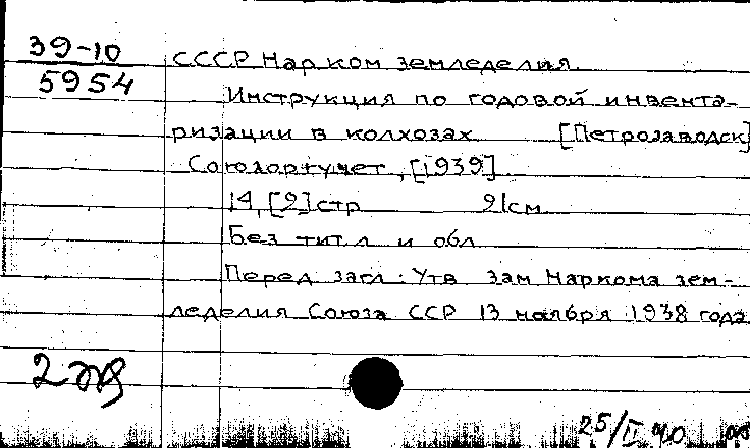 39-10
5954
СССР Нарком земледелия.
Инструкция по годовой инвента-
ризации в колхозах [Петрозаводск]
Союзоргучет, [1939].
14, [2] стр 21см
Без тит л и обл
Перед загл: Утв зам Наркома зем-
леделия Союза ССР 13 ноября 1938 года
25/II 40